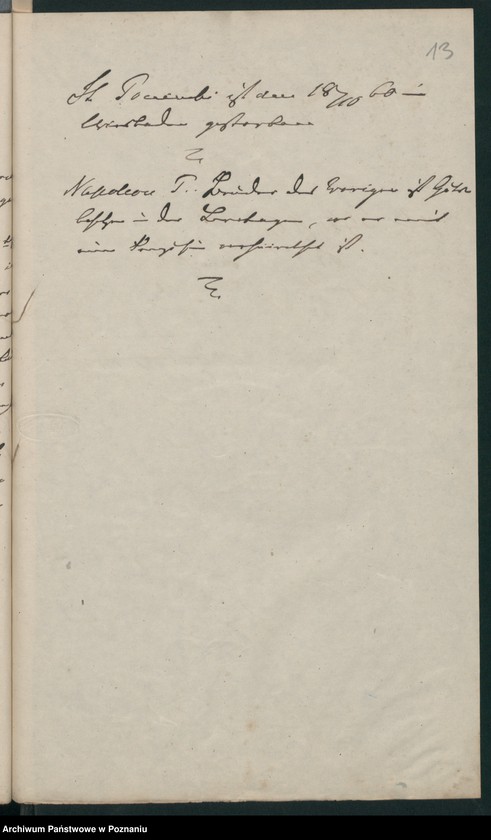 13
St. Poninski ist den 18/10 60 in
Wiesbaden gestorben
Napoleon P. Bruder des Vorigen ist Guts-
besitzer in der Bretagne, wo er mit
einer verheirathet ist.
Archiwum Państwowe w Poznaniu